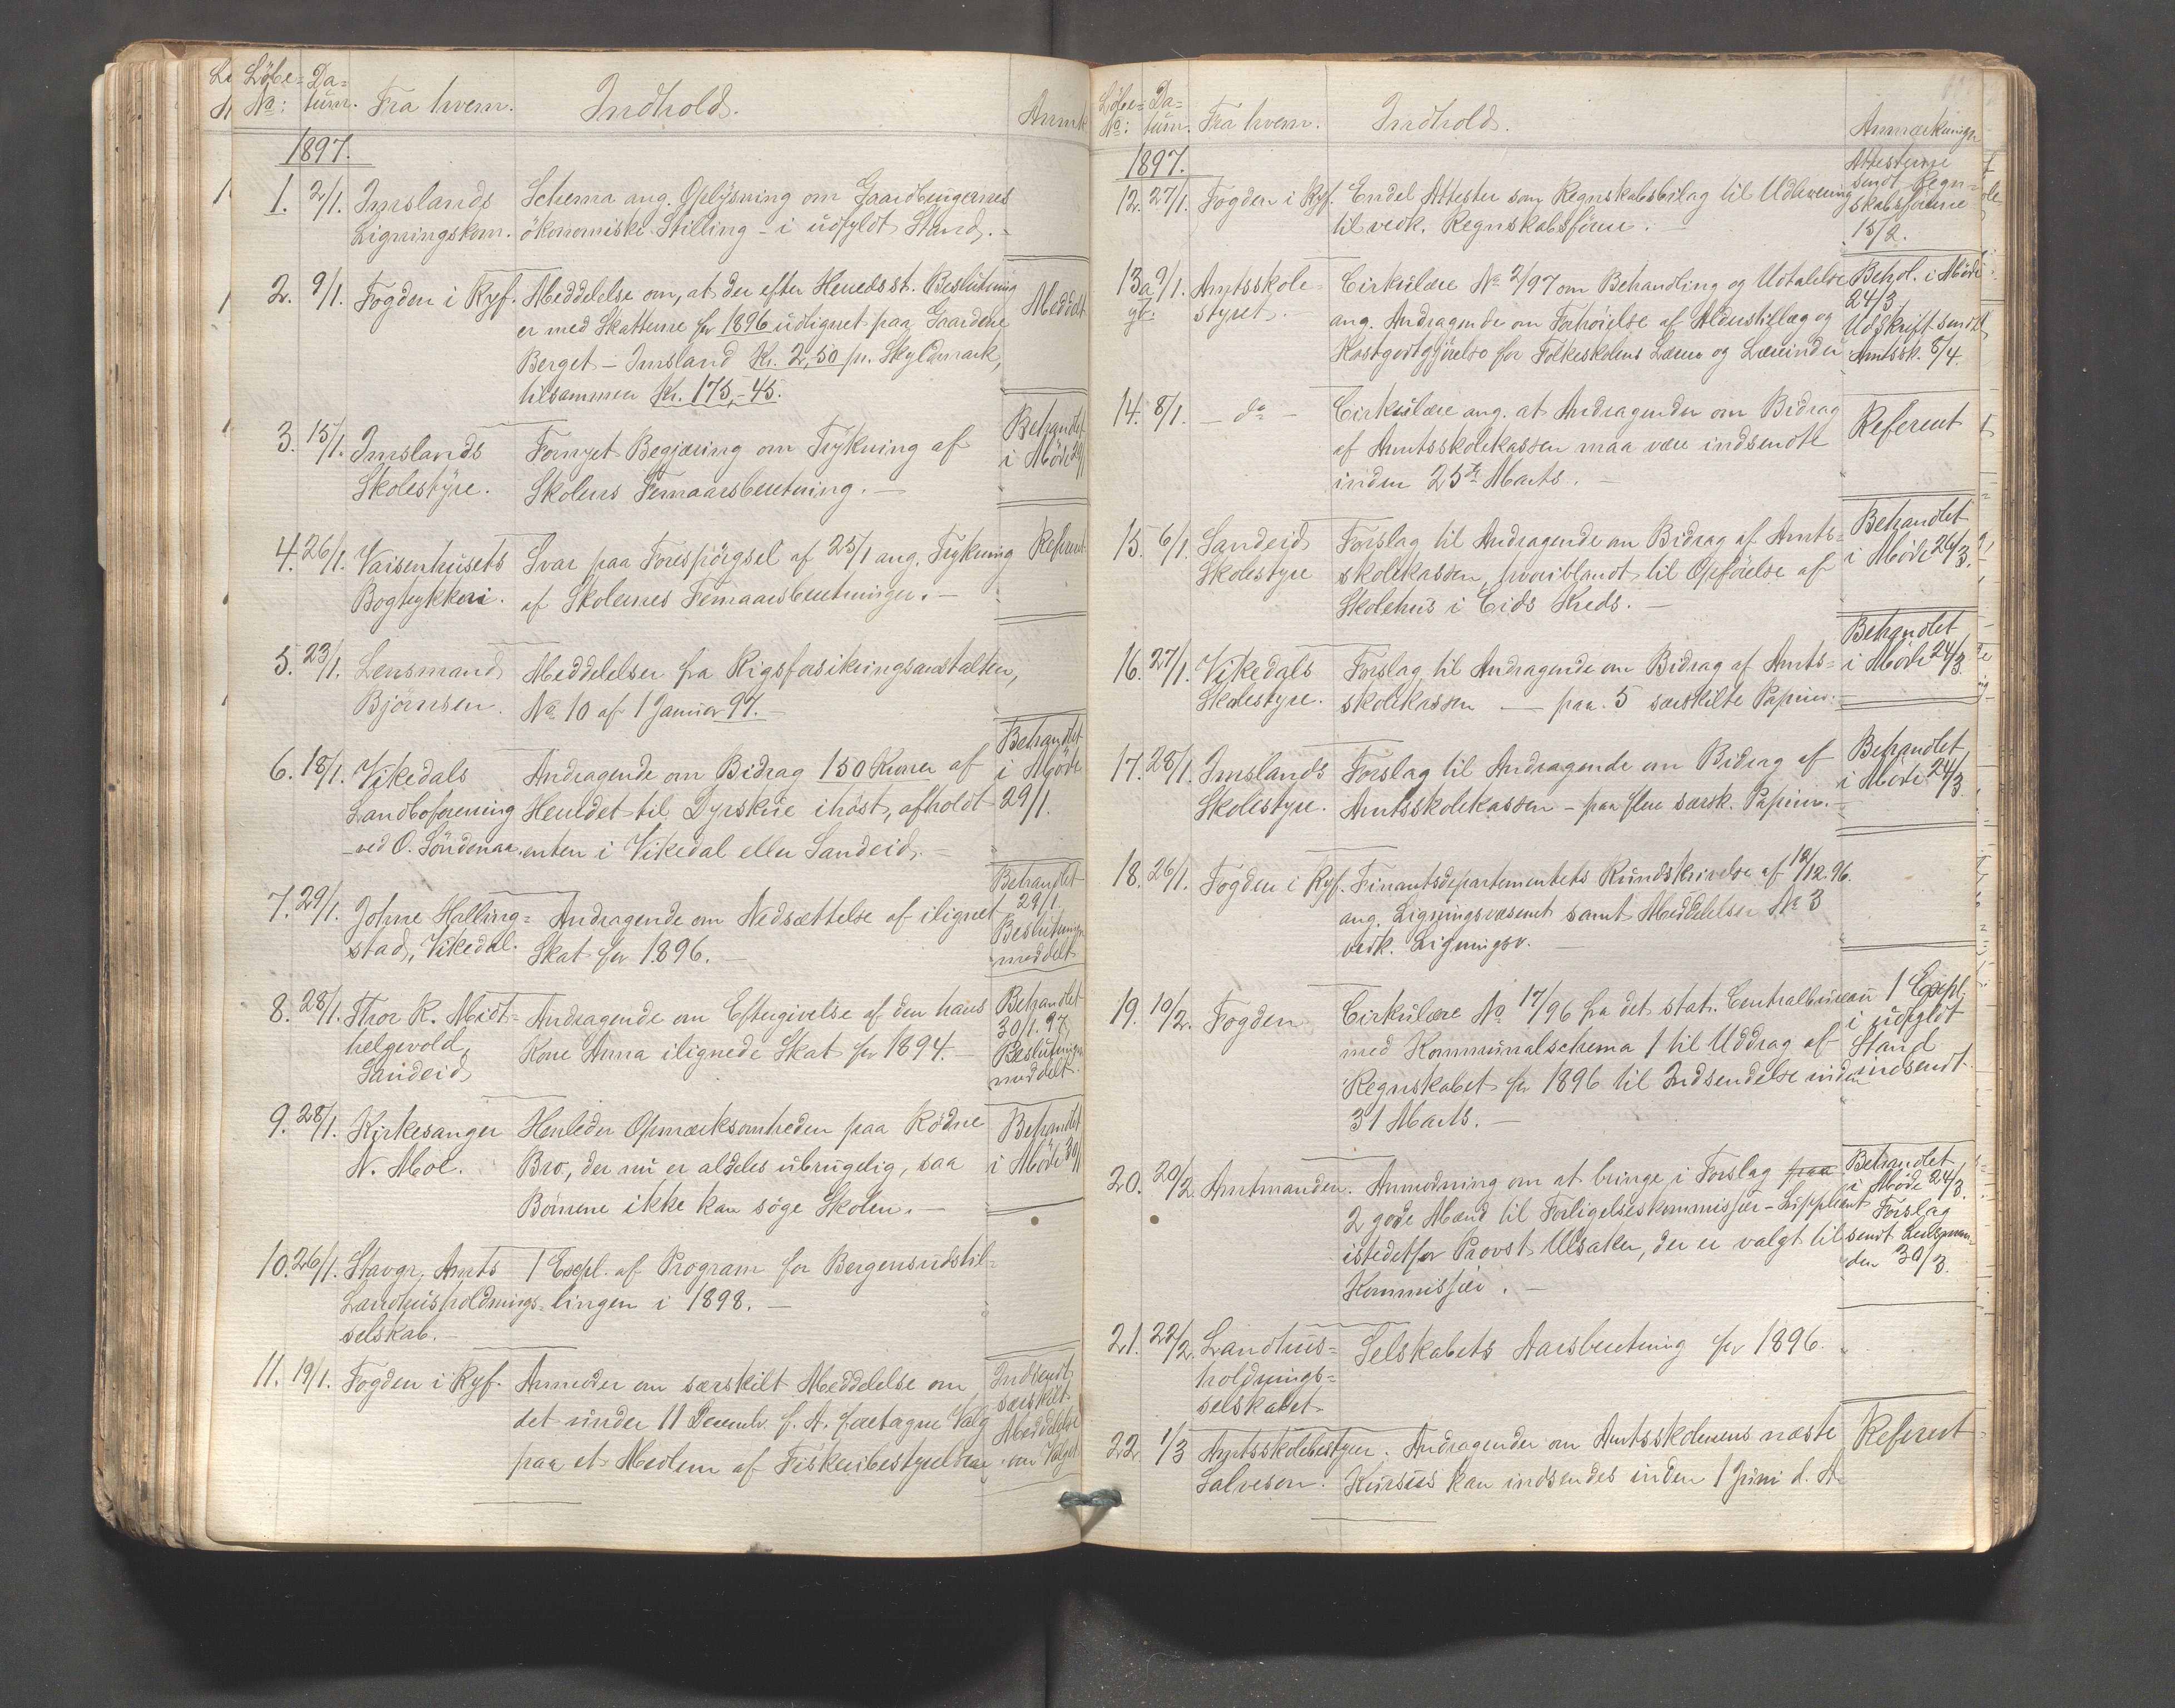 Löbe= Da=
No: tum. Fra hvem. Indhold. Anmk
1897.
1. 2/1. Imslands Schema ang. Oplysning om Gaardbrugernes
Ligningskom. ökonomiske Stilling - i udfyldt Stand. -
2. 9/1. Fogden i Ryf. Meddelelse om, at der efter Heredsst. Beslutning Meddelt
er med Skatterne for 1896 udlignet paa Gaardene
Berget - Imsland Kr. 2,50 pr. Skyldmark,
tilsammen Kr. 175,-45.
3. 15/1. Imslands Fornyet Begjæring om Trykning af Behandlet
Skolestyre. Skolens Femaarsberetning. - i Möde 29/1
4. 26/1. Vaisenhusets Svar paa Forespörgsel af 25/1 ang. Trykning Referert
Bogtrykkeri. af Skolernes Femaarsberetninger. -
5. 23/1. Lensmand Meddelelser fra Rigsforsikringsanstalten,
Björnsen. No 10 af 1 Januar 97. -
6. 18/1. Vikedals Andragende om Bidrag 150 Kroner af Behandlet
Landboforening Heredet til Dyrskue i höst, afholdt i Möde
ved O. Söndenaa. enten i Vikedal eller Sandeid. - 29/1.
7. 29/1. Johne Halling= Andragende om Nedsættelse af ilignet Behandlet 29/1.
stad, Vikedal. Skat for 1896. - Beslutningen meddelt
8. 28/1. Thor K. Midt= Andragende om Eftergivelse af den hans Behandlet
helgevold, Kone Anna ilignede Skat for 1894. - 30/1. 97.
Sandeid Beslutningen meddelt.
9. 28/1. Kirkesanger Henleder Opmærksomheden paa Rödne Behandlet
N. Moe. Bro, der nu er aldeles ubrugelig, saa i Möde 30/1
Börnene ikke kan söge Skolen. -
10. 26/1. Stavgr. Amts 1 Expl. af Program for Bergensudstil=
Landhusholdnings= lingen i 1898. -
selskab. -
11. 19/1. Fogden i Ryf. Anmoder om særskilt Meddelelse om Indsendt
det under 11 Decembr. f. A. foretagne Valg særskilt
paa et Medlem af Fiskeribestyrelsen. Meddelelse
om Valget
Löbe= Da=
No: tum. Fra hvem. Indhold. Anmærkninger
1897.
12. 27/1. Fogden i Ryf. Endel Attester som Regnskabsbilag til Udlevering Attesterne
til vedk. Regnskabsförere. - sendt Regn=
skabsförerne
15/2.
13a 9/1. Amtsskole= Cirkulære No 2/97 om Behandling og Udtalelse Behdl. i Möde
styret. ang. Andragende om Forhöielse af Alderstillæg og 24/3
Kostgodtgjörelse for Folkeskolens Lærere og Lærerinder Udskrift sendt
Amtssk. 8/4.
14. 8/1. - do - Cirkulære ang. at Andragender om Bidrag Referert
af Amtsskolekassen maa være indsendte
inden 25de Marts. -
15. 6/1. Sandeid Forslag til Andragende om Bidrag af Amts= Behandlet
Skolestyre skolekassen, hvoriblandt til Opförelse af i Möde 26/3.
Skolehus i Eids Kreds. -
16. 27/1. Vikedals Forslag til Andragende om Bidrag af Amts= Behandlet
Skolestyre. skolekassen - paa 5 særskilte Papirer. - i Möde 24/3.
17. 28/1. Imslands Forslag til Andragende om Bidrag af Behandlet
Skolestyre. Amtsskolekassen - paa flere særsk. Papirer. - i Möde 24/3.
18. 26/1. Fogden i Ryf. Finantsdepartementets Rundskrivelse af 18/12.96.
ang. Ligningsvæsenet samt Meddelelser No 3
vedk. Ligningsv. -
19. 10/2. Fogden Cirkulære No 17/96 fra det stat. Centralbureau 1 Expl.
med Kommunalschema 1 til Uddrag af i udfyldt
Regnskabet for 1896 til Indsendelse inden Stand
31 Marts. - indsendt.
20. 20/2. Amtmanden. Anmodning om at bringe i Forslag paa Behandlet
2 gode Mænd til Forligelseskommissær-Suppleant i Möde 24/3.
istedetfor Provst Ulsaker, der er valgt til Forslag
Kommissær. - sendt Lensman=
den 30/3.
21. 22/2. Landhus= Selskabets Aarsberetning for 1896.
holdnings=
selskabet
22. 1/3 Amtsskolebestyrer. Andragender om Amtsskolernes næste Referert
Salveson. Kursus kan indsendes inden 1 Juni d. A.